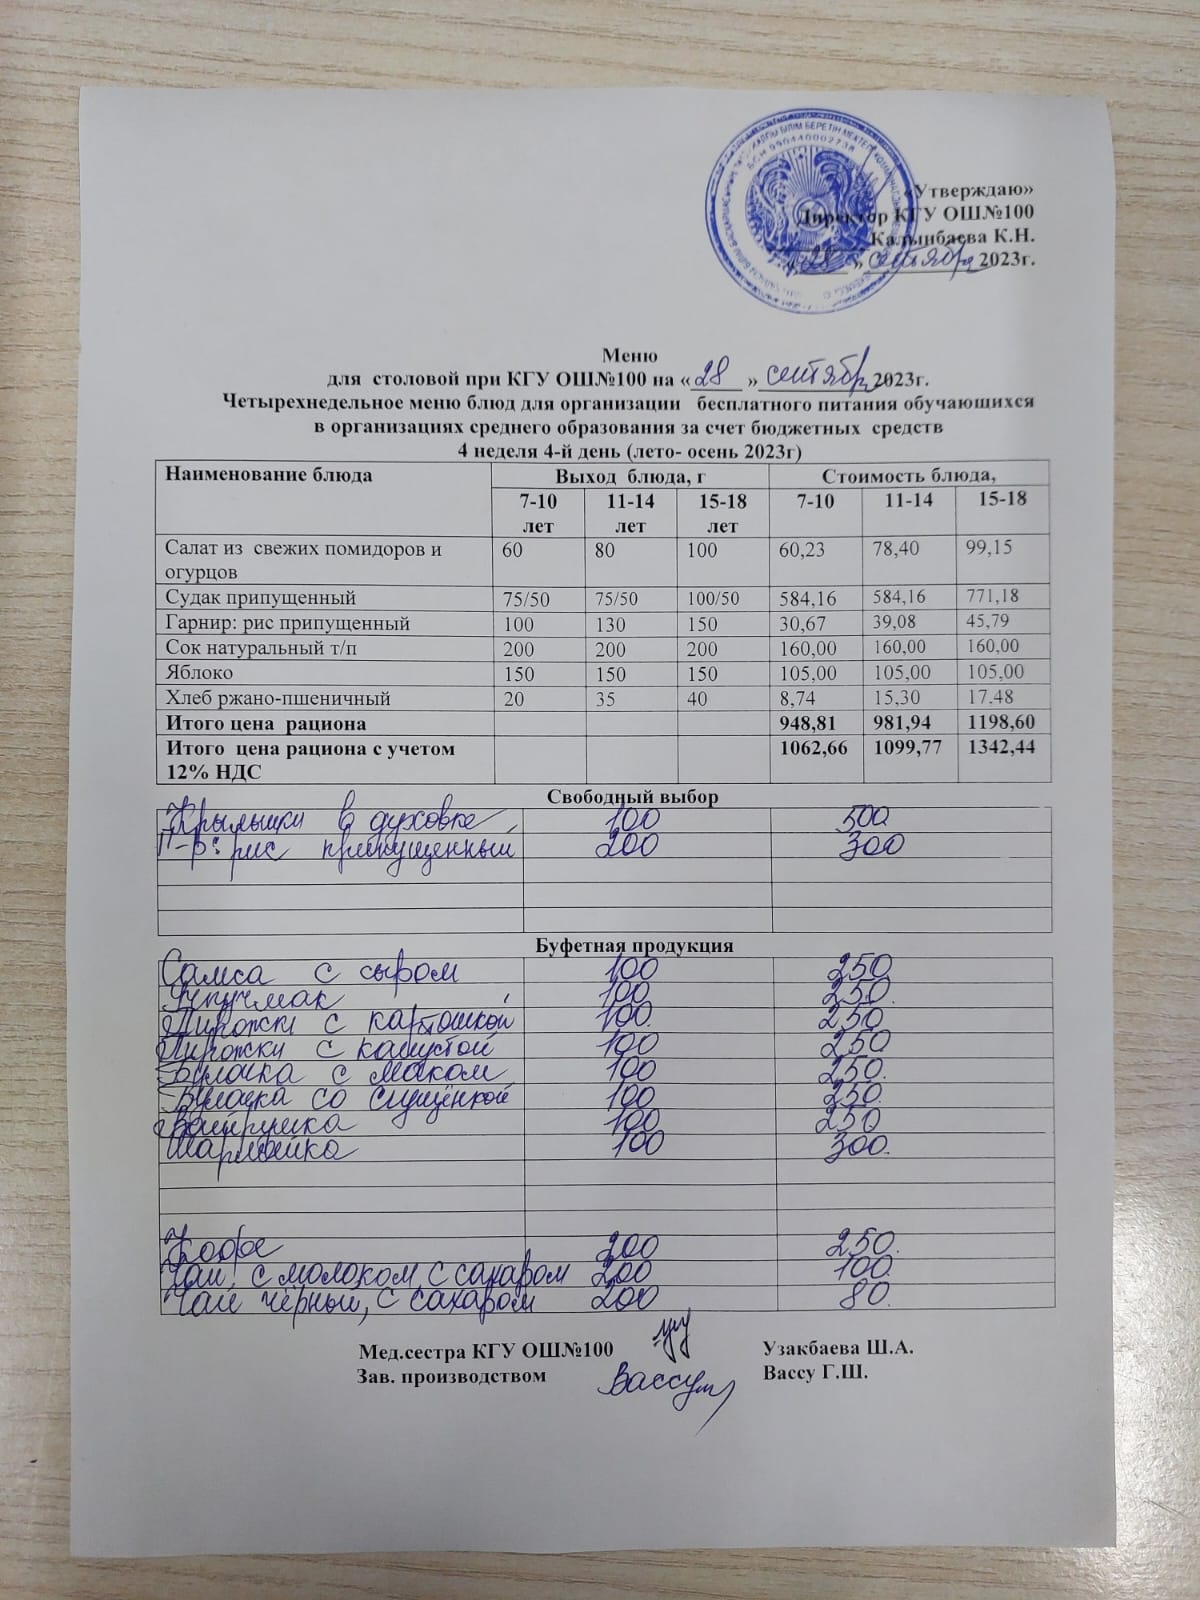 «Утверждаю»
Директор КГУ ОШ№100
Калынбаева К.Н.
«28» сентября 2023г.
Меню
для столовой при КГУ ОШ№100 на «28» сентября 2023г.
Четырехнедельное меню блюд для организации бесплатного питания обучающихся
в организациях среднего образования за счет бюджетных средств
4 неделя 4-й день (лето- осень 2023г)
Наименование блюда Выход блюда, г Стоимость блюда,
7-10 лет 11-14 лет 15-18 лет 7-10 11-14 15-18
Салат из свежих помидоров и огурцов 60 80 100 60,23 78,40 99,15
Судак припущенный 75/50 75/50 100/50 584,16 584,16 771,18
Гарнир: рис припущенный 100 130 150 30,67 39,08 45,79
Сок натуральный т/п 200 200 200 160,00 160,00 160,00
Яблоко 150 150 150 105,00 105,00 105,00
Хлеб ржано-пшеничный 20 35 40 8,74 15,30 17.48
Итого цена рациона 948,81 981,94 1198,60
Итого цена рациона с учетом 12% НДС 1062,66 1099,77 1342,44
Свободный выбор
Крылышки в духовке 100 500
Г-р: рис припущенный 200 300
Буфетная продукция
Самса с сыром 100 250
Эчпучмак 100 250.
Пирожки с картошкой 100. 250
Пирожки с капустой 100 250
Булочка с маком 100 250.
Булочка со сгущёнкой 100 250.
Ватрушка 100 250
100 300.
Кофе 200 250.
Чай с молоком, с сахаром 200 100.
Чай чёрный, с сахаром 200 80.
Мед.сестра КГУ ОШ№100 Узакбаева Ш.А.
Зав. производством Вассу Г.Ш.